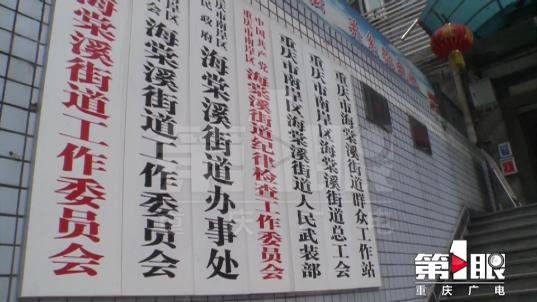 海棠溪街道工作委员会
会 岸区
海棠溪街道工作委员会
重庆市南岸区
民政府
海棠溪街道办事处
中国共产党
重庆市南岸区
海棠溪街道纪律检查工作委员会
重庆市南岸区海棠溪街道人民武装部
重庆市南岸区海棠溪街道总工会
重庆市海棠溪街道群众工作站
第1眼
重庆广电